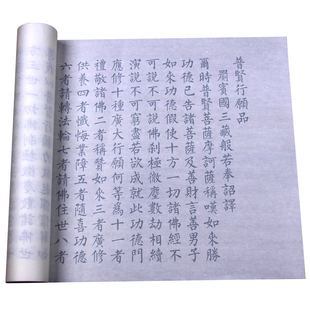 普賢行願品
罽賓國三藏般若奉詔譯
爾時普賢菩薩摩訶薩稱嘆如來勝
功德已告諸菩薩及善財言善男子
如來功德假使十方一切諸佛經不
可說不可說佛剎極微塵數劫相續
演說不可窮盡若欲成就此功德門
應修十種廣大行願何等為十一者
禮敬諸佛二者稱讚如來三者廣修
供養四者懺悔業障五者隨喜功德
六者請轉法輪七者請佛住世八者